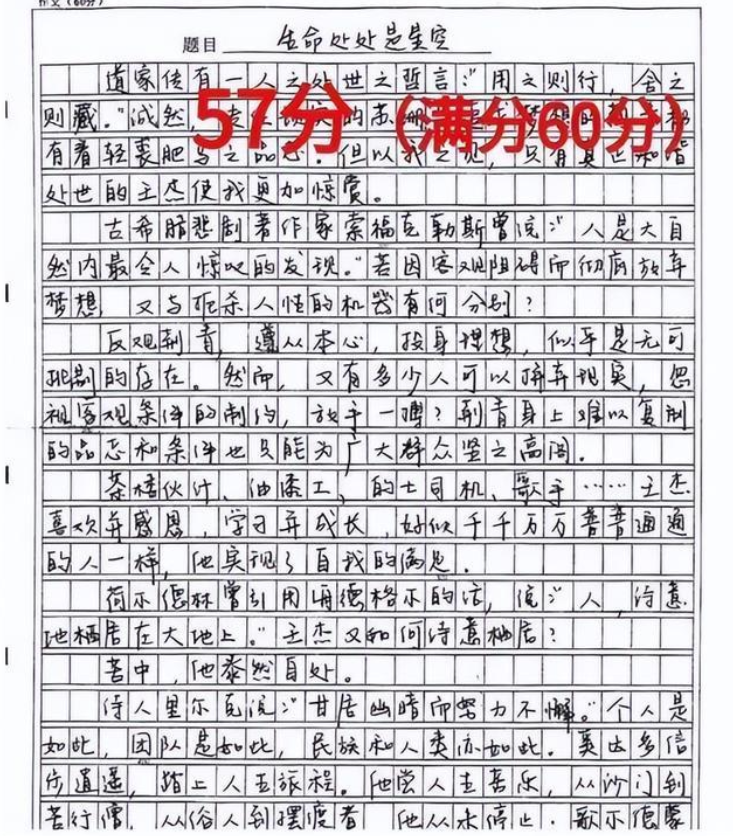 作文（60分）
题目 生命处处是星空
道家传有一人之处世之哲言：“用之则行，舍之
则藏。”诚然，的苏都
57分（满分60分）
有着轻裘肥马之品志。但以我之见，只有真正和谐
处世的王杰使我更加惊赏。
古希腊悲剧著作家索福克勒斯曾说：“人是大自
然内最令人惊叹的发现。”若因客观阻碍而彻底放弃
梦想，又与扼杀人性的机器有何分别？
反观荆青，遵从本心，投身理想，似乎是无可
挑剔的存在。然而，又有多少人可以摒弃现实，忽
视客观条件的制约，放手一搏？荆青身上难以复制
的品志和条件也只能为广大群众竖之高阁。
茶楼伙计、油漆工、的士司机、歌手……王杰
喜欢并感恩，学习并成长，好似千千万万普普通通
的人一样，他实现了自我的满足。
荷尔德林曾引用海德格尔的话，说：“人，诗意
地栖居在大地上。”王杰又如何诗意栖居？
苦中，他泰然自处。
诗人里尔克说：“甘居幽暗而努力不懈。”个人是
如此，团队是如此，民族和人类亦如此。奚达多信
步逍遥，踏上人生旅程。他尝人生喜乐，从沙门到
苦行僧，从俗人到摆渡者，他从未停止。歌尔德蒙